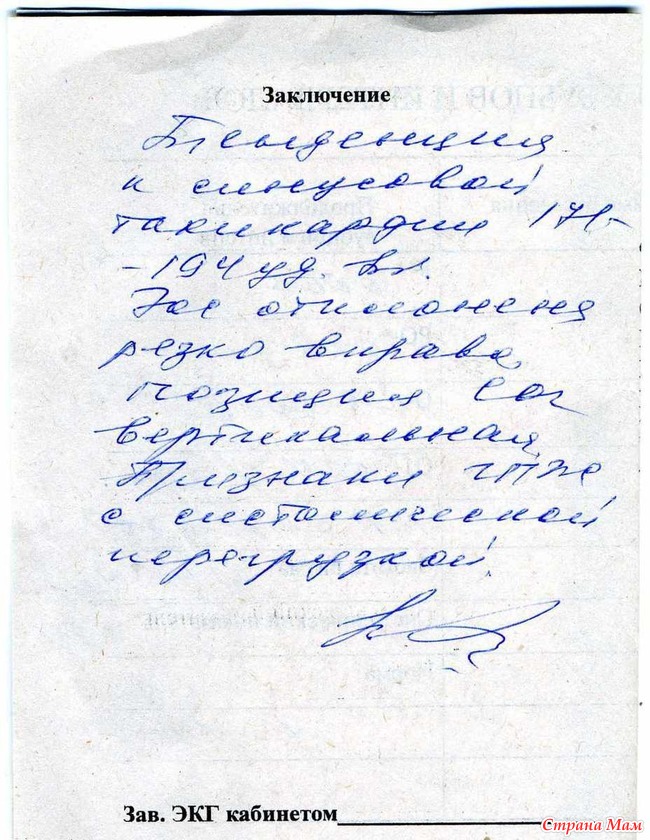 Заключение
Тенденция
к синусовой
тахикардии 171-
-194 уд. в м.
Эос отклонена
резко вправо,
позиция
вертикальная
Признаки ГПЖ
с систолической
перегрузкой.
Зав. ЭКГ кабинетом
Страна Мам